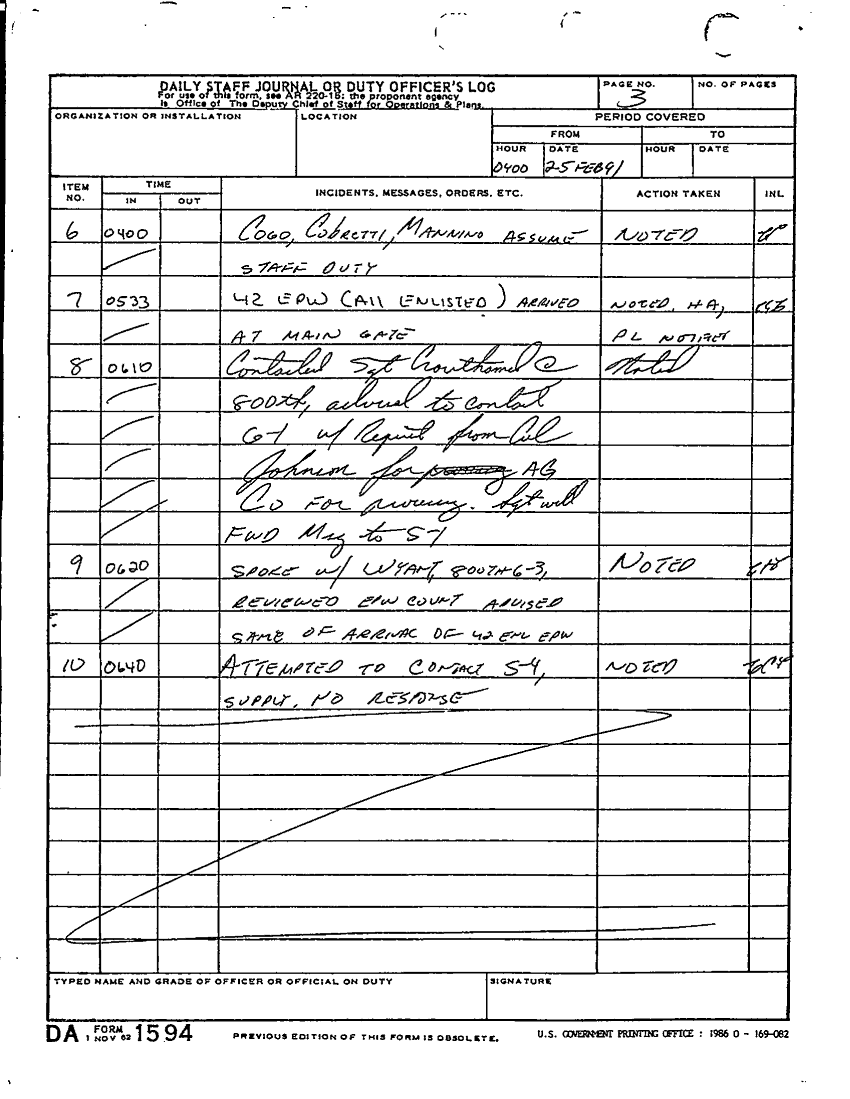 DAILY STAFF JOURNAL OR DUTY OFFICER'S LOG
For use of this form, see AR 220-15; the proponent agency
is Office of The Deputy Chief of Staff for Operations & Plans.
PAGE NO.
3
NO. OF PAGES
ORGANIZATION OR INSTALLATION
LOCATION
PERIOD COVERED
FROM
TO
HOUR
DATE
HOUR
DATE
0400
25 FEB 91
ITEM NO.
TIME
IN
OUT
INCIDENTS, MESSAGES, ORDERS, ETC.
ACTION TAKEN
INL
6 0400 COGO, COBRETTI, MANNINO ASSUME NOTED
STAFF DUTY
7 0533 42 EPW (All ENLISTED) ARRIVED NOTED, HA,
AT MAIN GATE PL NOTIFIED
8 0610 Contacted Sgt Crouthamel @ Noted
800th, advised to contact
G-1 w/ Request from Col
Johnson for AG
Co FOR processing. Sgt will
FWD Msg to S-1
9 0620 SPOKE w/ WYANT, 800TH G-3, NOTED
REVIEWED EPW COUNT ADVISED
SAME OF ARRIVAL OF 42 ENL EPW
10 0640 ATTEMPTED TO CONTACT S-4, NOTED
SUPPLY, NO RESPONSE
TYPED NAME AND GRADE OF OFFICER OR OFFICIAL ON DUTY
SIGNATURE
DA FORM 1 NOV 62 1594
PREVIOUS EDITION OF THIS FORM IS OBSOLETE.
U.S. GOVERNMENT PRINTING OFFICE : 1986 O - 169-082